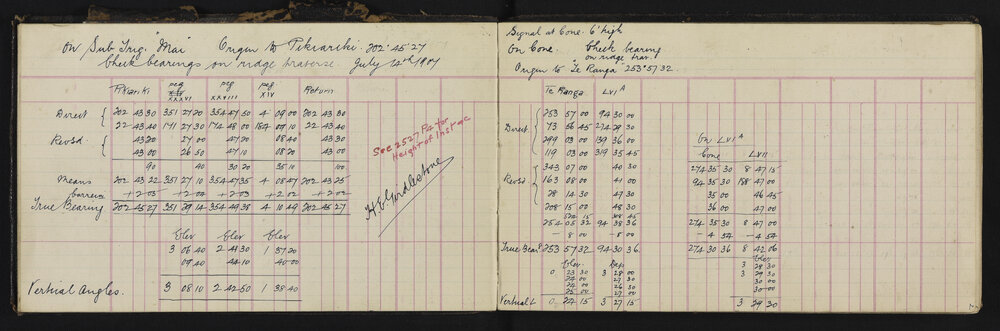 On Sub Trig. "Mai" Origin to Tikiariki. 202° 45' 27
Check bearings on ridge traverse. July 12th 1907
Tikiariki peg XXXVI peg XXVIII peg XIV Return
Direct { 202 43 30 351 27 20 354 47 50 4 09 00 202 43 30
22 43 40 171 27 30 174 48 00 184 09 10 22 43 40
Revsd. { 43 20 27 00 47 20 08 40 43 30
43 00 26 50 47 10 08 20 43 00
90 40 30 20 35 10 100
Means 202 43 22 351 27 10 354 47 35 4 08 47 202 43 25
+2 05 +2 00 +2 03 +2 02 +2 02
True Bearing 202 45 27 351 29 14 354 49 38 4 10 49 202 45 27
Elev Elev Elev
3 06 40 2 41 30 1 37 20
09 40 44 10 40 00
Vertical Angles. 3 08 10 2 42 50 1 38 40
See 2527 P4 for
Height of Inst etc
H.E. Girdlestone
Signal at Cone. 6' high
On Cone. Check bearing
on ridge trav.
Origin to "Te Ranga" 253° 57' 32
Te Ranga LVI A
Direct { 253 57 00 94 30 00
73 56 45 274 29 30
299 03 00 139 36 00
119 03 00 319 35 45
Revsd { 343 07 00 40 30
163 08 00 41 00
28 14 30 47 30
208 15 00 48 30
254 05 32 94 38 36
- 8 00 - 8 00
True Bear 253 57 32 94 30 36
Elev Dep
0 23 30 3 28 00
24 00 27 30
24 00 26 30
25 00 27 00
Vertical L 0 24 15 3 27 15
On LVI A
Cone LVII
274 35 30 8 47 15
94 35 30 188 47 00
35 00 46 45
36 00 47 00
274 35 30 8 47 00
- 4 54 - 4 54
274 30 36 8 42 06
Elev
3 28 30
3 29 30
30 00
30 00
3 29 30